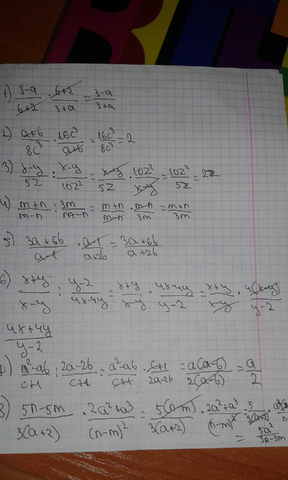 1) 3-a/6+2 · 6+2/3+a = 3-a/3+a
2) a+b/8c³ · 16c³/a+b = 16c³/8c³ = 2
3) x-y/5z : x-y/10z² = x-y/5z · 10z²/x-y = 10z²/5z = 2z
4) m+n/m-n : 3m/m-n = m+n/m-n · m-n/3m = m+n/3m
5) 3a+6b/a-1 · a-1/a+2b = 3a+6b/a+2b
6) x+y/x-y : y-2/4x-4y = x+y/x-y · 4x-4y/y-2 = x+y/x-y · 4(x-y)/y-2
4x+4y/y-2
7) a²-ab/c+1 : 2a-2b/c+1 = a²-ab/c+1 · c+1/2a-2b = a(a-b)/2(a-b) = a/2
8) 5n-5m/3(a+2) · 2a²+a³/(n-m)² = 5(n-m)/3(a+2) · 2a²+a³/(n-m)² · 5/3(a+2)
= 5a²/3n-3m